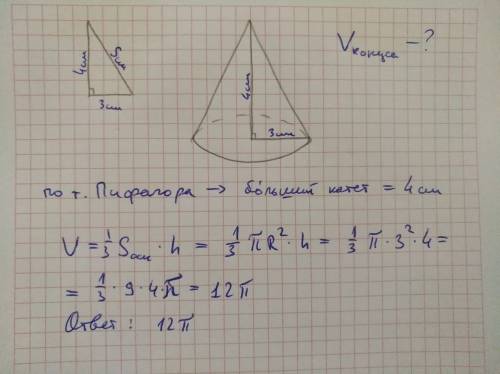 4см
5см
3см
4см
3см
Vконуса - ?
по т. Пифагора → бо́льший катет = 4 см
V = 1/3 Sосн · h = 1/3 πR² · h = 1/3 π · 3² · 4 =
= 1/3 · 9 · 4 · π = 12π
Ответ : 12π